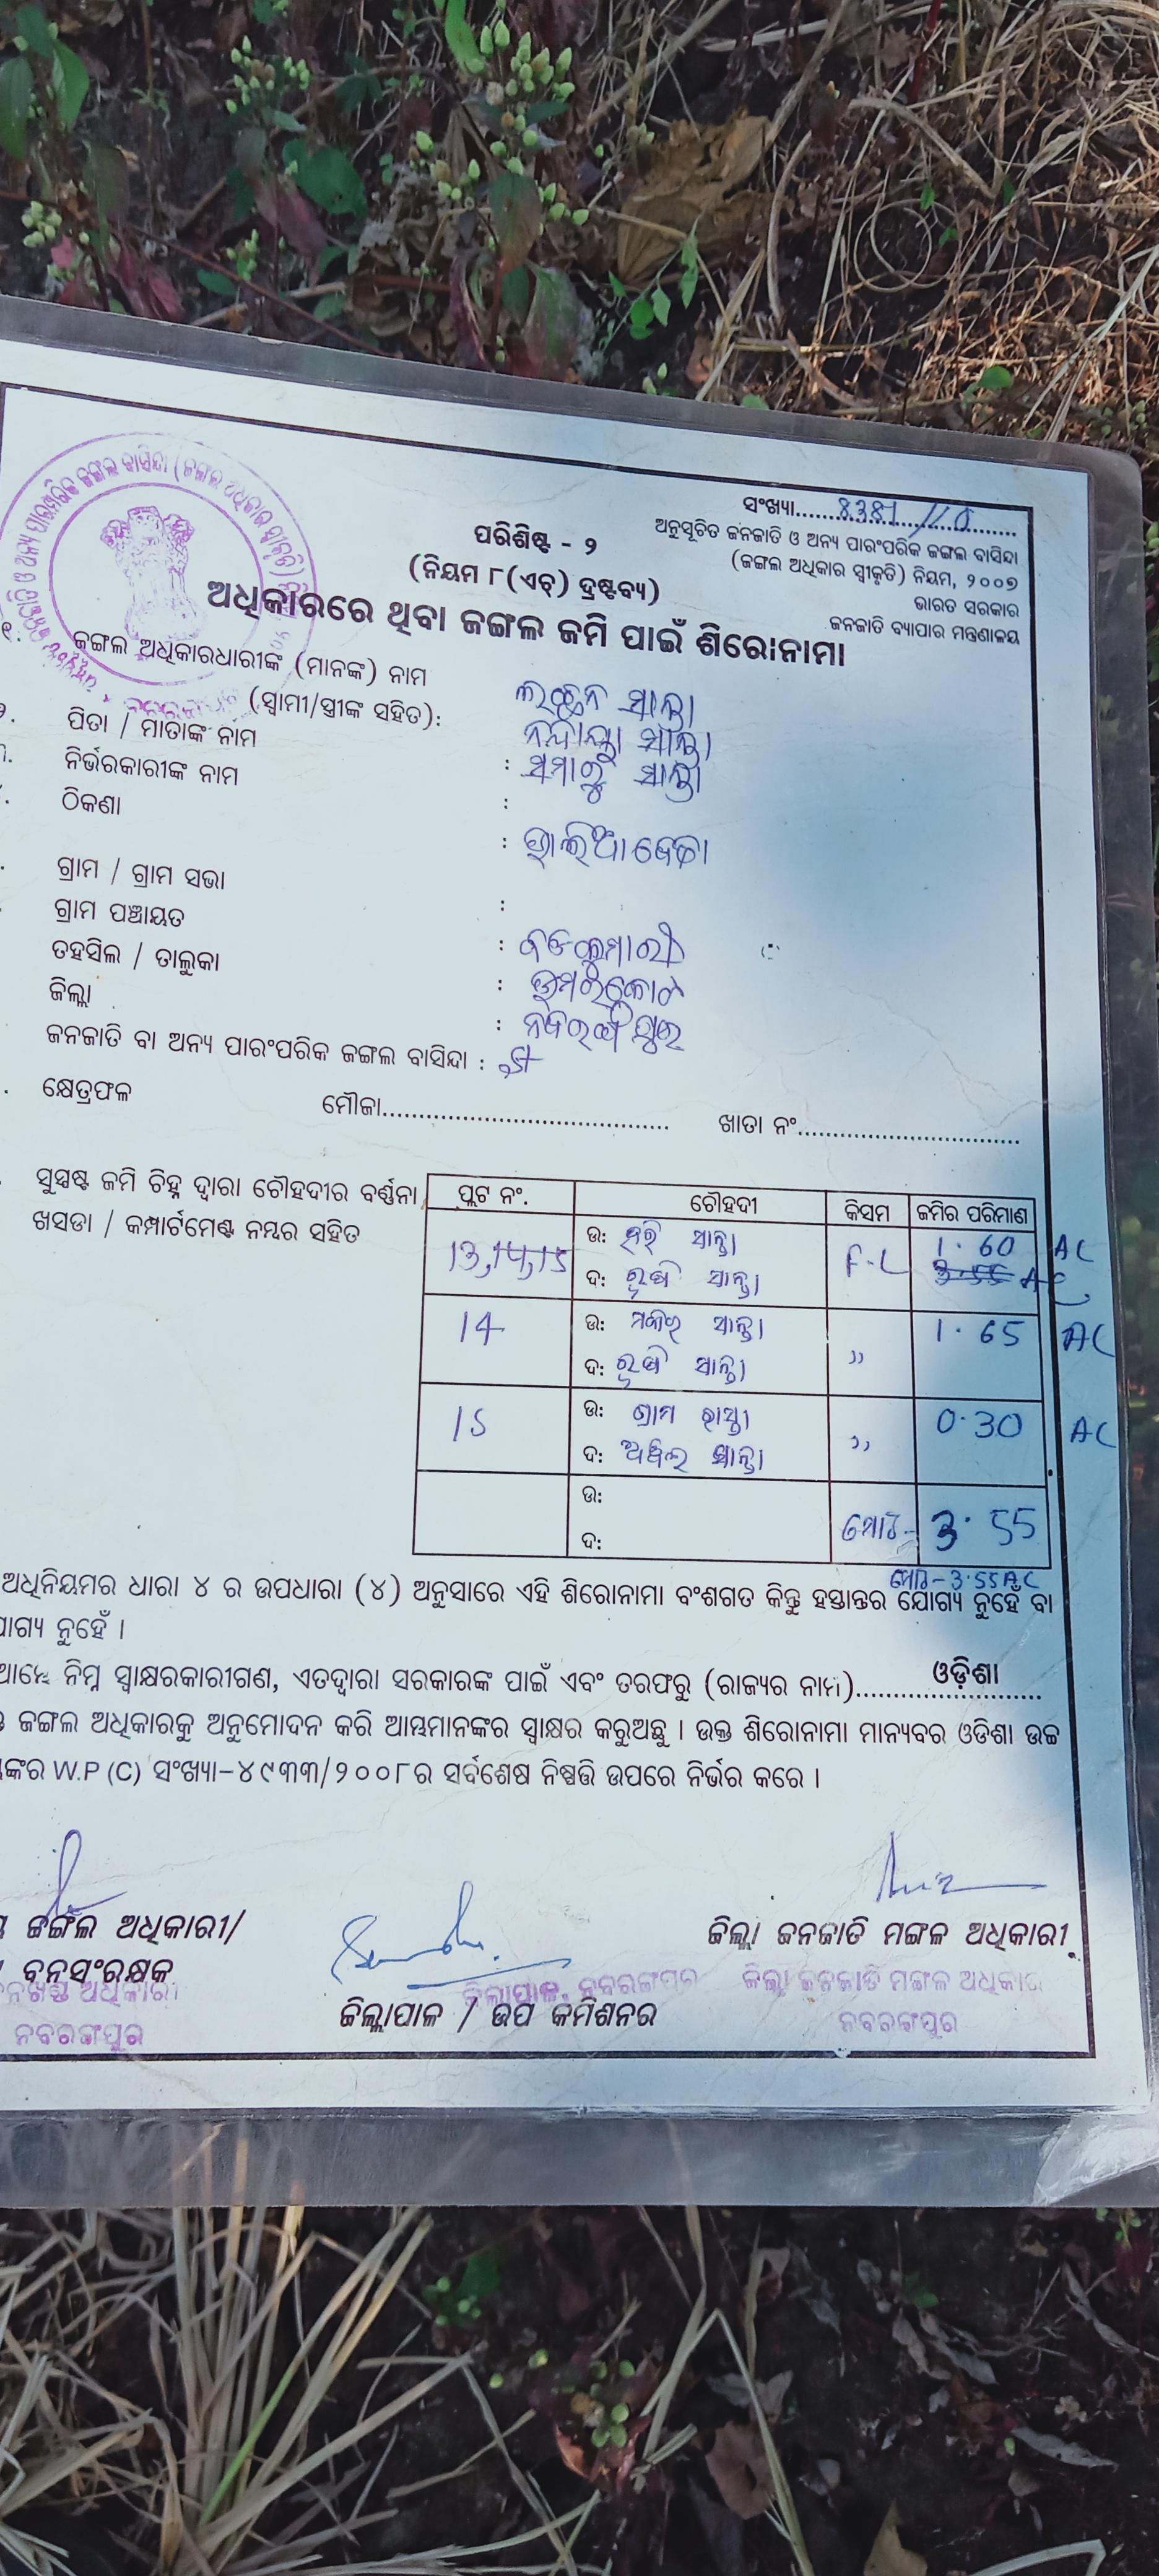 ସଂଖ୍ୟା..........8381/10..........
ପରିଶିଷ୍ଟ - ୨
ଅନୁସୂଚିତ ଜନଜାତି ଓ ଅନ୍ୟ ପାରଂପରିକ ଜଙ୍ଗଲ ବାସିନ୍ଦା
(ନିୟମ ୮(ଏଚ୍) ଦ୍ରଷ୍ଟବ୍ୟ)
(ଜଙ୍ଗଲ ଅଧିକାର ସ୍ୱୀକୃତି) ନିୟମ, ୨୦୦୭
ଭାରତ ସରକାର
ଜନଜାତି ବ୍ୟାପାର ମନ୍ତ୍ରଣାଳୟ
ଅଧିକାରରେ ଥିବା ଜଙ୍ଗଲ ଜମି ପାଇଁ ଶିରୋନାମା
୧. ଜଙ୍ଗଲ ଅଧିକାରଧାରୀଙ୍କ (ମାନଙ୍କ) ନାମ ଲଚ୍ଛନ ସାନ୍ତା
(ସ୍ୱାମୀ/ସ୍ତ୍ରୀଙ୍କ ସହିତ): ସାନ୍ତା
ପିତା / ମାତାଙ୍କ ନାମ : ସମାରୁ ସାନ୍ତା
ନିର୍ଭରକାରୀଙ୍କ ନାମ :
ଠିକଣା : ଭାଲିଆବେଡା
ଗ୍ରାମ / ଗ୍ରାମ ସଭା :
ଗ୍ରାମ ପଞ୍ଚାୟତ :
ତହସିଲ / ତାଲୁକା : ଉମରକୋଟ
ଜିଲ୍ଲା : ନବରଙ୍ଗପୁର
ଜନଜାତି ବା ଅନ୍ୟ ପାରଂପରିକ ଜଙ୍ଗଲ ବାସିନ୍ଦା : ST
କ୍ଷେତ୍ରଫଳ ମୌଜା.................... ଖାତା ନଂ....................
ସୁସ୍ପଷ୍ଟ ଜମି ଚିହ୍ନ ଦ୍ୱାରା ଚୌହଦୀର ବର୍ଣ୍ଣନା,
ଖସଡା / କମ୍ପାର୍ଟମେଣ୍ଟ ନମ୍ବର ସହିତ
ପ୍ଲଟ ନଂ. ଚୌହଦୀ କିସମ ଜମିର ପରିମାଣ
13,14,15 ଉ: ହରି ସାନ୍ତା F.L 1.60 AC
ଦ: ସାନ୍ତା 3.55 AC
14 ଉ: ସାନ୍ତା 1.65 AC
ଦ: ସାନ୍ତା ,,
15 ଉ: ଗ୍ରାମ ରାସ୍ତା 0.30 AC
ଦ: ସାନ୍ତା ,,
ଉ:
ଦ: ମୋଟ- 3.55
ମୋଟ-3.55AC
ଅଧିନିୟମର ଧାରା ୪ ର ଉପଧାରା (୪) ଅନୁସାରେ ଏହି ଶିରୋନାମା ବଂଶଗତ କିନ୍ତୁ ହସ୍ତାନ୍ତର ଯୋଗ୍ୟ ନୁହେଁ ବା
ନୁହେଁ ।
ନିମ୍ନ ସ୍ୱାକ୍ଷରକାରୀଗଣ, ଏତଦ୍ୱାରା ସରକାରଙ୍କ ପାଇଁ ଏବଂ ତରଫରୁ (ରାଜ୍ୟର ନାମ)..........ଓଡ଼ିଶା..........
ଜଙ୍ଗଲ ଅଧିକାରକୁ ଅନୁମୋଦନ କରି ଆମ୍ଭମାନଙ୍କର ସ୍ୱାକ୍ଷର କରୁଅଛୁ । ଉକ୍ତ ଶିରୋନାମା ମାନ୍ୟବର ଓଡିଶା ଉଚ୍ଚ
W.P (C) ସଂଖ୍ୟା-୪୯୩୩/୨୦୦୮ର ସର୍ବଶେଷ ନିଷ୍ପତ୍ତି ଉପରେ ନିର୍ଭର କରେ ।
ଜଙ୍ଗଲ ଅଧିକାରୀ/
ବନସଂରକ୍ଷକ
ନବରଙ୍ଗପୁର
ଜିଲ୍ଲାପାଳ, ନବରଙ୍ଗପୁର
ଜିଲ୍ଲାପାଳ / ଉପ କମିଶନର
ଜିଲ୍ଲା ଜନଜାତି ମଙ୍ଗଳ ଅଧିକାରୀ
ଜିଲ୍ଲା ଜନଜାତି ମଙ୍ଗଳ ଅଧିକାରୀ
ନବରଙ୍ଗପୁର